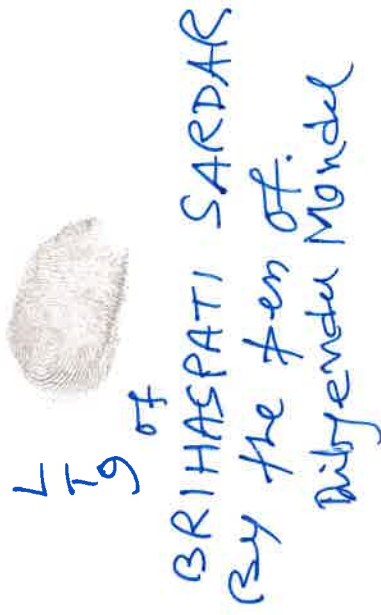 LTI
of
BRIHASPATI SARDAR
By the Pen of.
Dibyendu Mondal